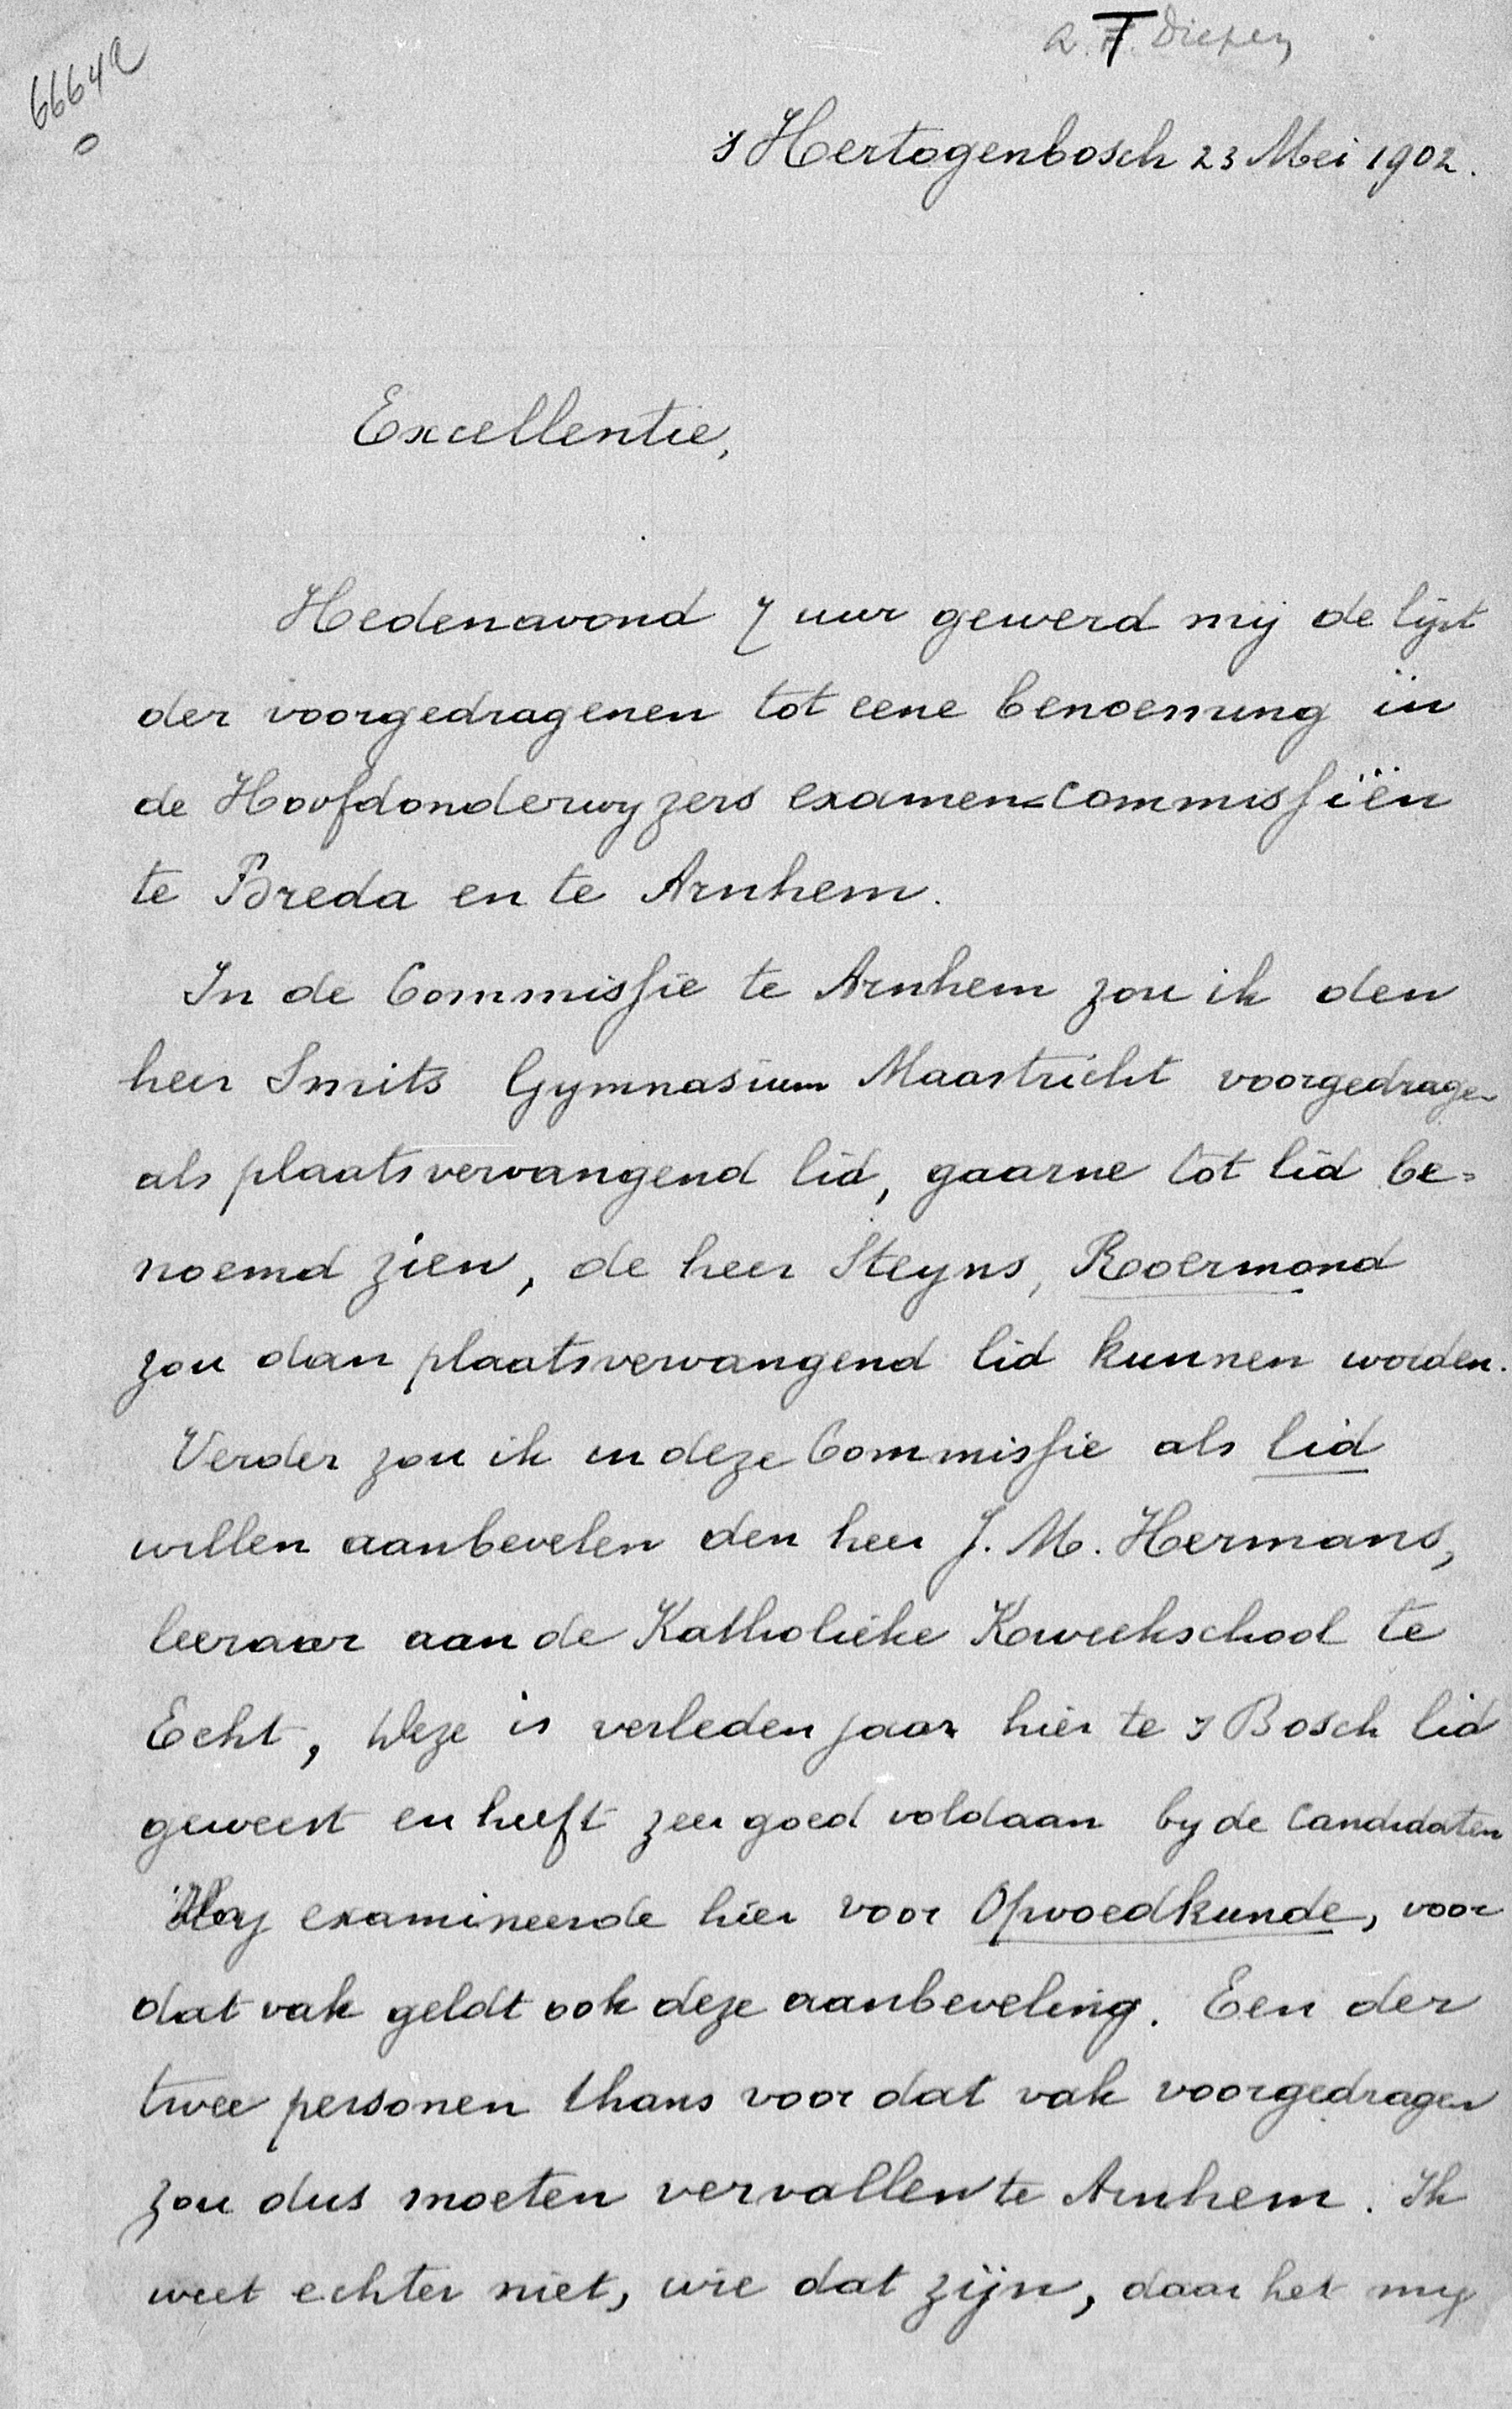 6664a
A. F. Diepen
's Hertogenbosch 23 Mei 1902.
Excellentie,
Hedenavond 7 uur gewerd mij de lijst
der voorgedragenen tot eene benoeming in
de Hoofdonderwyzers examen=commissiën
te Breda en te Arnhem.
In de Commissie te Arnhem zou ik den
heer Smits Gymnasium Maastricht voorgedragen
als plaatsvervangend lid, gaarne tot lid be=
noemd zien, de heer Steyns, Roermond
zou dan plaatsvervangend lid kunnen worden.
Verder zou ik in deze Commissie als lid
willen aanbevelen den heer J. M. Hermans,
leeraar aan de Katholieke Kweekschool te
Echt, deze is verleden jaar hier te 's Bosch lid
geweest en heeft zeer goed voldaan by de candidaten
Hy examineerde hier voor Opvoedkunde, voor
dat vak geldt ook deze aanbeveling. Een der
twee personen thans voor dat vak voorgedragen
zou dus moeten vervallen te Arnhem. Ik
weet echter niet, wie dat zijn, daar het my